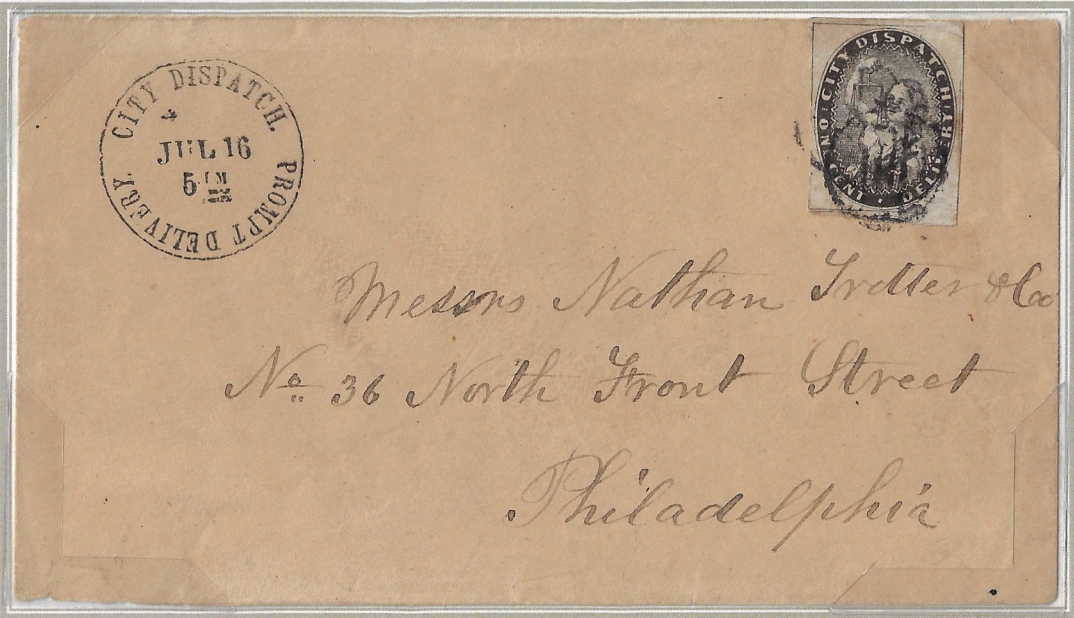 CITY DISPATCH.
JUL 16
5
PROMPT DELIVERY
CITY DISPATCH
ONE CENT
Messrs Nathan Trotter & Co
No. 36 North Front Street
Philadelphia